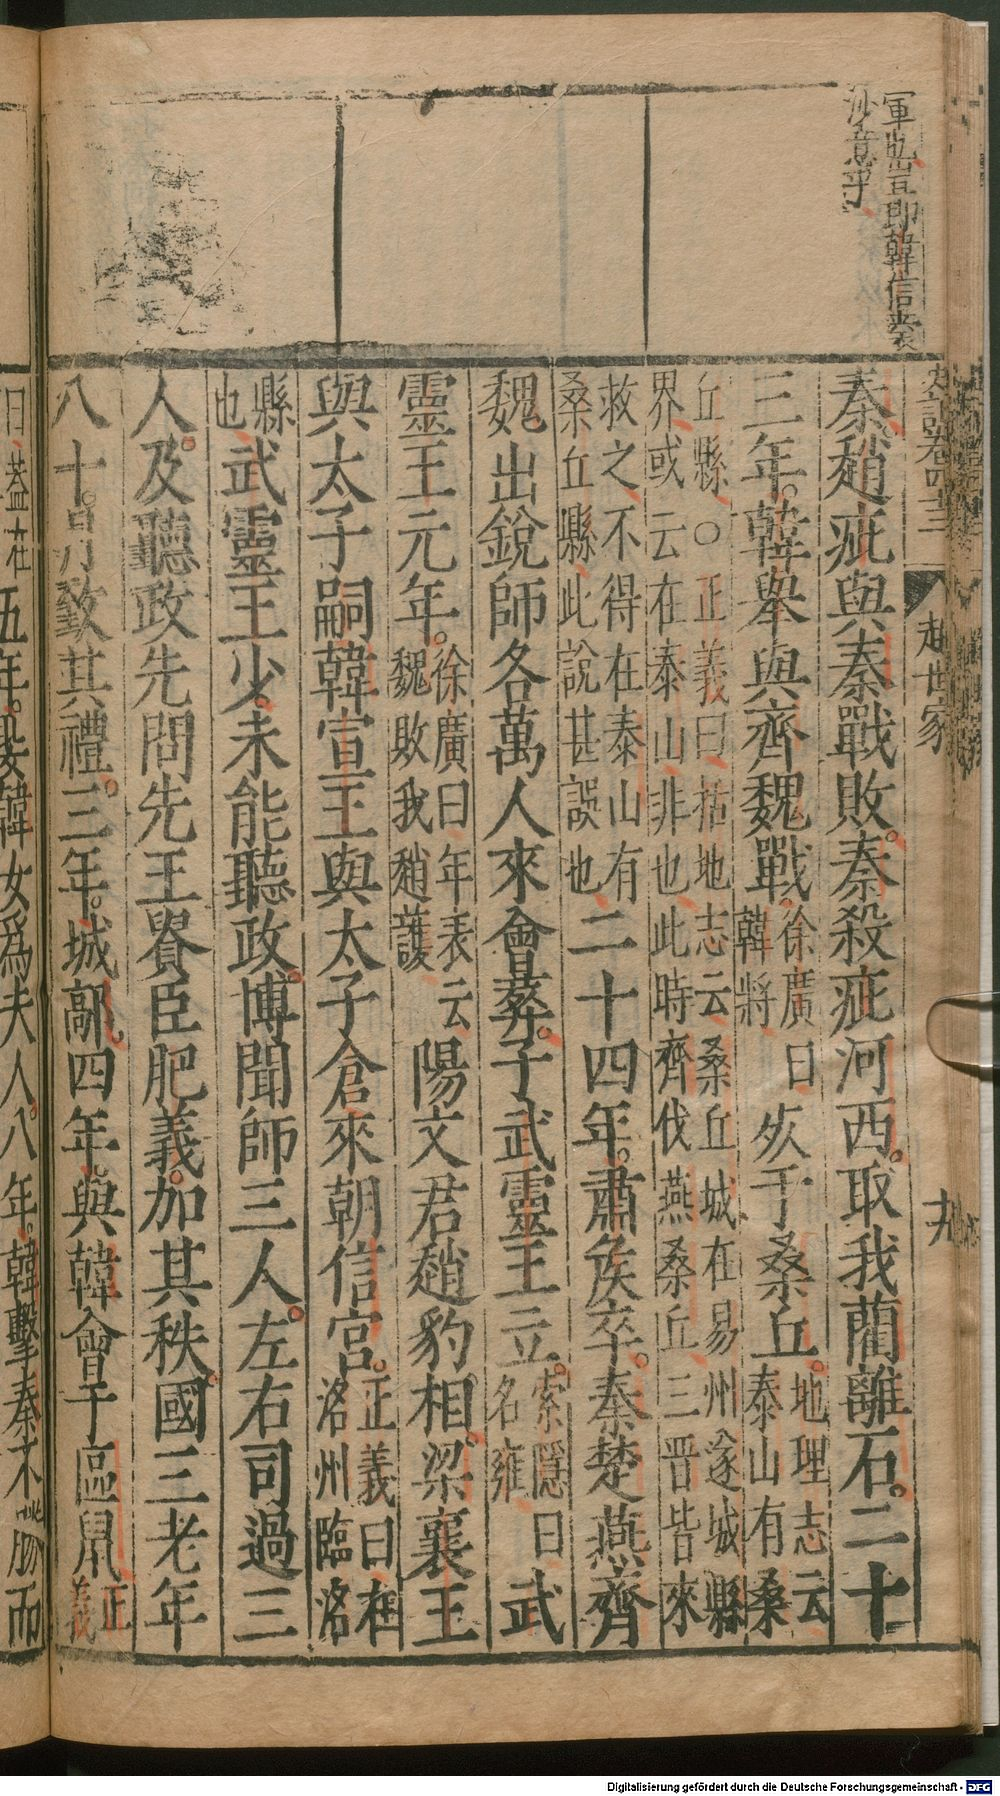 軍也豈即韓信囊
沙意乎
史記卷四十三 趙世家 十九
秦趙疵與秦戰敗秦殺疵河西取我藺離石二十
三年韓舉與齊魏戰徐廣曰韓將死于桑丘地理志云泰山有桑
丘縣○正義曰括地志云桑丘城在易州遂城縣
界或云在泰山非也此時齊伐燕桑丘三晉皆來
救之不得在泰山有桑丘縣此說甚誤也二十四年肅侯卒秦楚燕齊
魏出銳師各萬人來會葬子武靈王立索隱曰名雍武
靈王元年徐廣曰年表云魏敗我趙護陽文君趙豹相梁襄王
與太子嗣韓宣王與太子倉來朝信宮正義曰在洺州臨洺
縣也武靈王少未能聽政博聞師三人左右司過三
人及聽政先問先王貴臣肥義加其秩國三老年
八十月致其禮三年城鄗四年與韓會于區鼠正義
曰蓋在五年娶韓女爲夫人八年韓擊秦不勝而
Digitalisierung gefördert durch die Deutsche Forschungsgemeinschaft - DFG